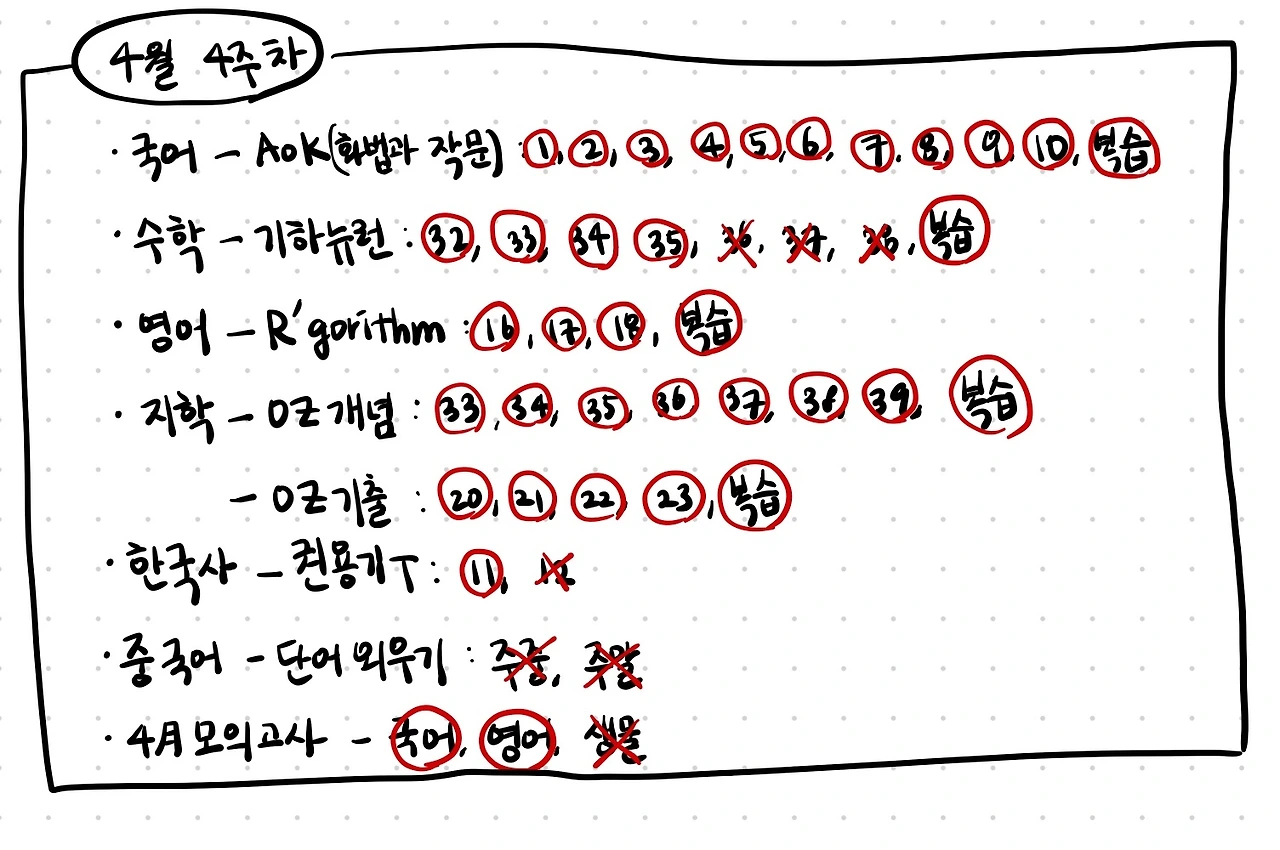 4월 4주차
· 국어 - AOK(화법과 작문) : 1, 2, 3, 4, 5, 6, 7, 8, 9, 10, 복습
· 수학 - 기하뉴런 : 32, 33, 34, 35, 36, 37, 38, 복습
· 영어 - R'gorithm : 16, 17, 18, 복습
· 지학 - OZ개념 : 33, 34, 35, 36, 37, 38, 39, 복습
- OZ기출 : 20, 21, 22, 23, 복습
· 한국사 - 권용기T : 11, 12
· 중국어 - 단어 외우기 : 주중, 주말
· 4月 모의고사 - 국어, 영어, 생물